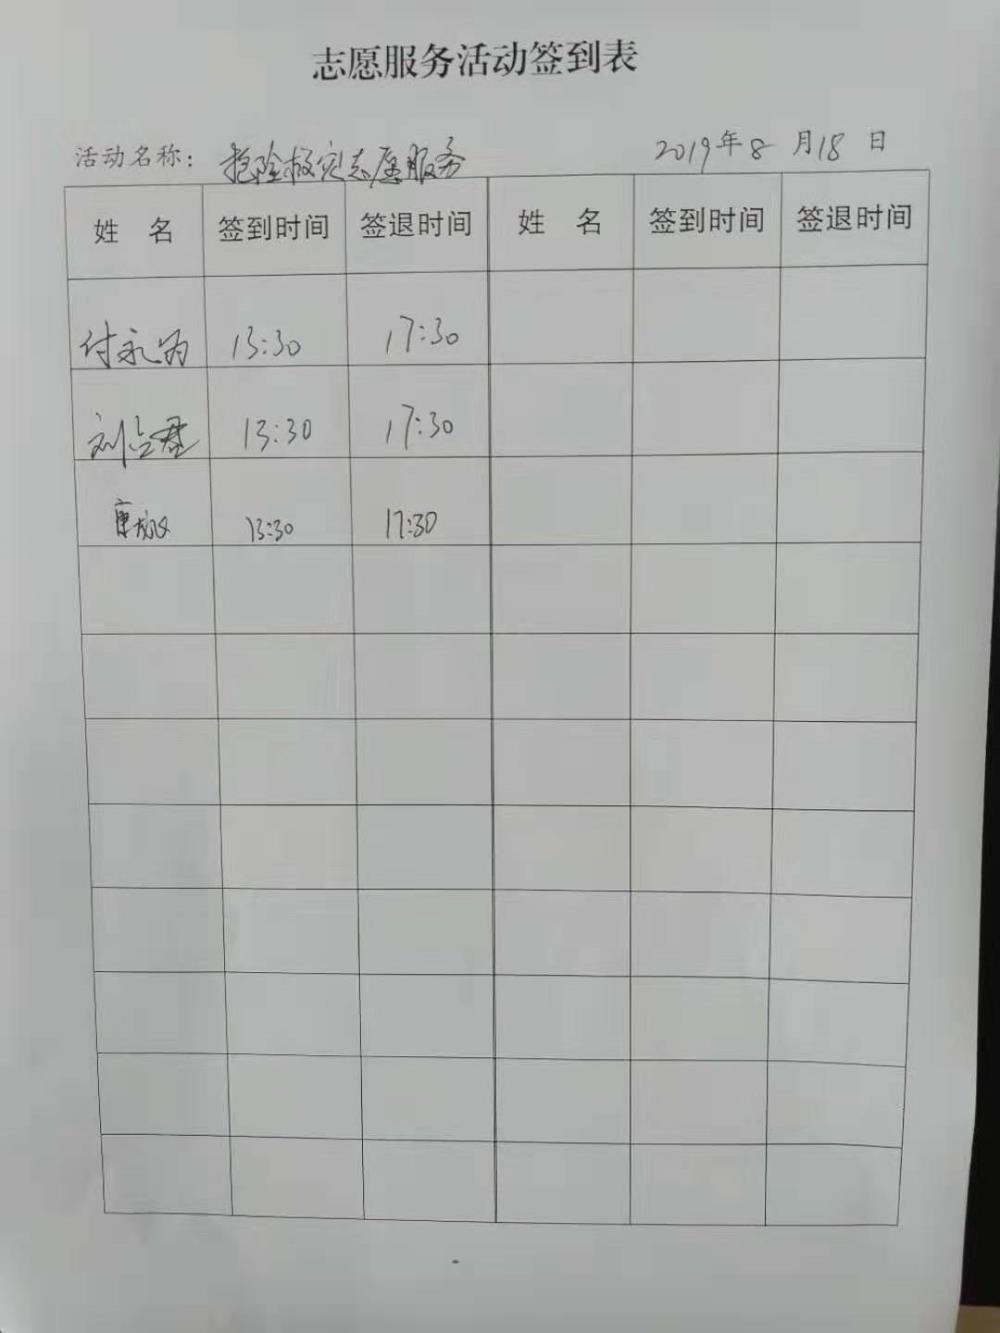 志愿服务活动签到表
活动名称：抢险救灾志愿服务 2019年8月18日
姓名 签到时间 签退时间 姓名 签到时间 签退时间
付永为 13:30 17:30
刘 13:30 17:30
康 13:30 17:30